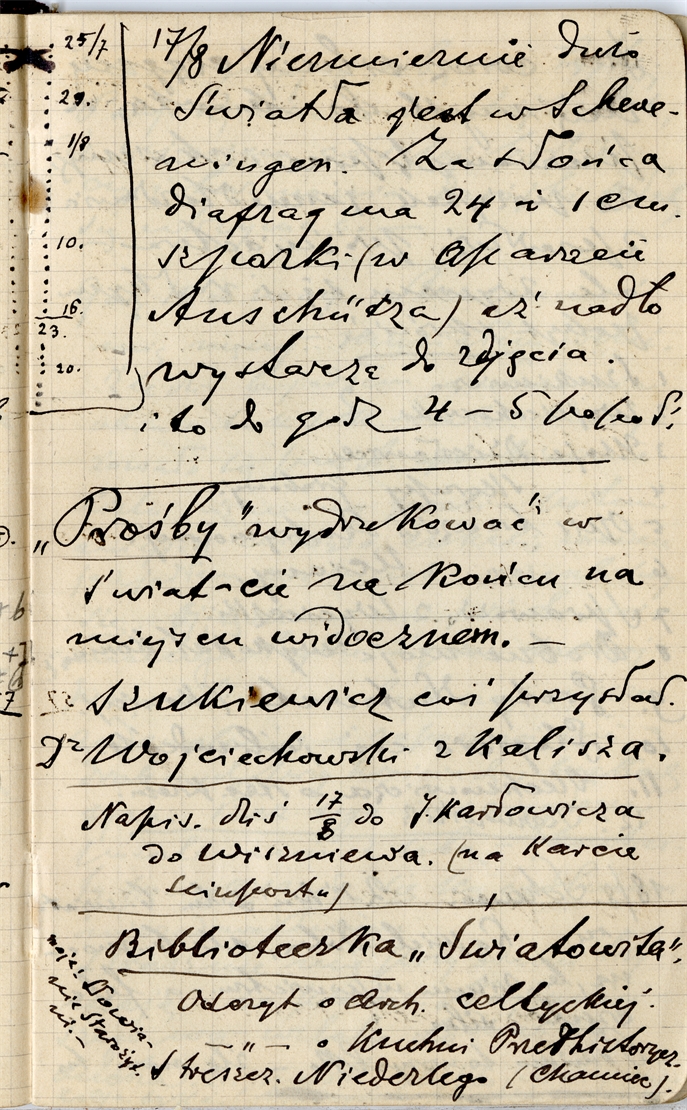 25/7
29.
1/8
10.
16.
23.
20.
17/8 Niezmiernie dużo
światła jest w Scheve-
ningen. Za słońca
diafragma 24 i 1 cm.
szparki (w aparacie
Anschütza) aż nadto
wystarcza do zdjęcia.
i to do godz 4 – 5 popoł.
„Prośby" wydrukować w
świat-cie na końcu na
miejscu widocznem. —
Szukiewicz coś przysłał.
Dr Wojciechowski z Kalisza.
Napis. dziś 17/8 do J. Karłowicza
do Wiszniewa. (na Karcie
Biblioteczka „Światowita".
Odczyt o Arch. celtyckiej.
— „ — o Kuchni Przedhistorycz.
Streszcz. Niederlego (Chamiec).